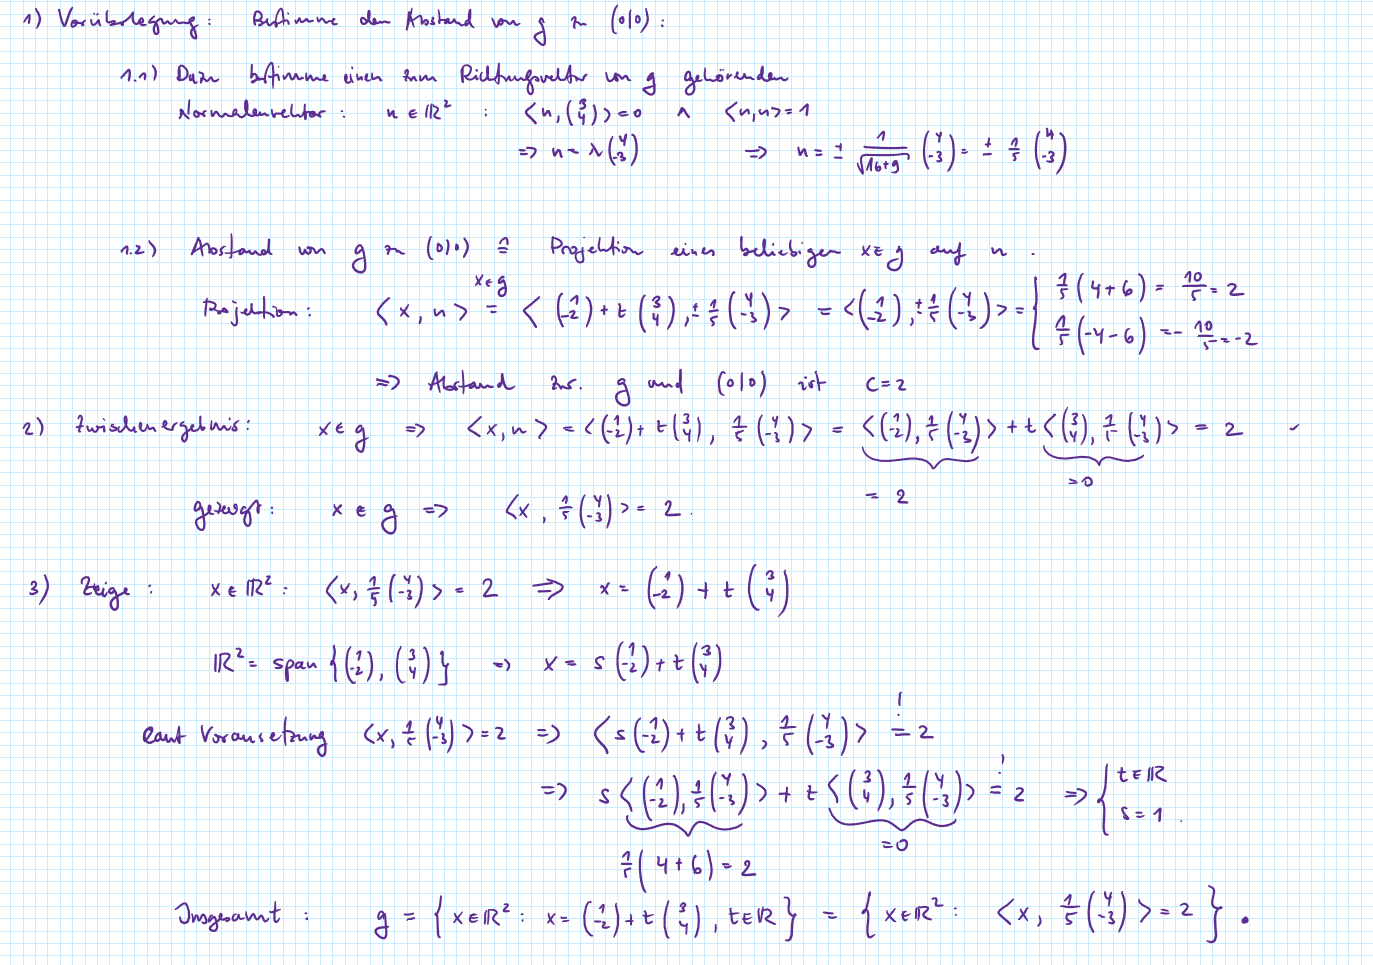 1) Vorüberlegung: Bestimme den Abstand von g zu (0|0):
1.1) Dazu bestimme einen zum Richtungsvektor von g gehörenden
Normalenvektor: n ∈ ℝ² : <n, (3 4)> = 0 ∧ <n,n> = 1
=> n = λ (4 -3) => n = ± 1/√(16+9) (4 -3) = ± 1/5 (4 -3)
1.2) Abstand von g zu (0|0) ≙ Projektion eines beliebigen x ∈ g auf n.
Projektion: <x, n> =^{x∈g} <(1 -2) + t (3 4), ± 1/5 (4 -3)> = <(1 -2), ± 1/5 (4 -3)> = { 1/5 (4+6) = 10/5 = 2
1/5 (-4-6) = -10/5 = -2
=> Abstand zw. g und (0|0) ist c = 2
2) Zwischenergebnis: x ∈ g => <x, n> = <(1 -2) + t (3 4), 1/5 (4 -3)> = <(1 -2), 1/5 (4 -3)> + t <(3 4), 1/5 (4 -3)> = 2
= 2 = 0
gezeigt: x ∈ g => <x, 1/5 (4 -3)> = 2.
3) Zeige: x ∈ ℝ²: <x, 1/5 (4 -3)> = 2 => x = (1 -2) + t (3 4)
ℝ² = span {(1 -2), (3 4)} => x = s (1 -2) + t (3 4)
laut Voraussetzung <x, 1/5 (4 -3)> = 2 => <s (1 -2) + t (3 4), 1/5 (4 -3)> =^! 2
=> s <(1 -2), 1/5 (4 -3)> + t <(3 4), 1/5 (4 -3)> =^! 2 => { t ∈ ℝ
s = 1.
1/5 (4+6) = 2 = 0
Insgesamt: g = {x ∈ ℝ²: x = (1 -2) + t (3 4), t ∈ ℝ} = {x ∈ ℝ²: <x, 1/5 (4 -3)> = 2}.